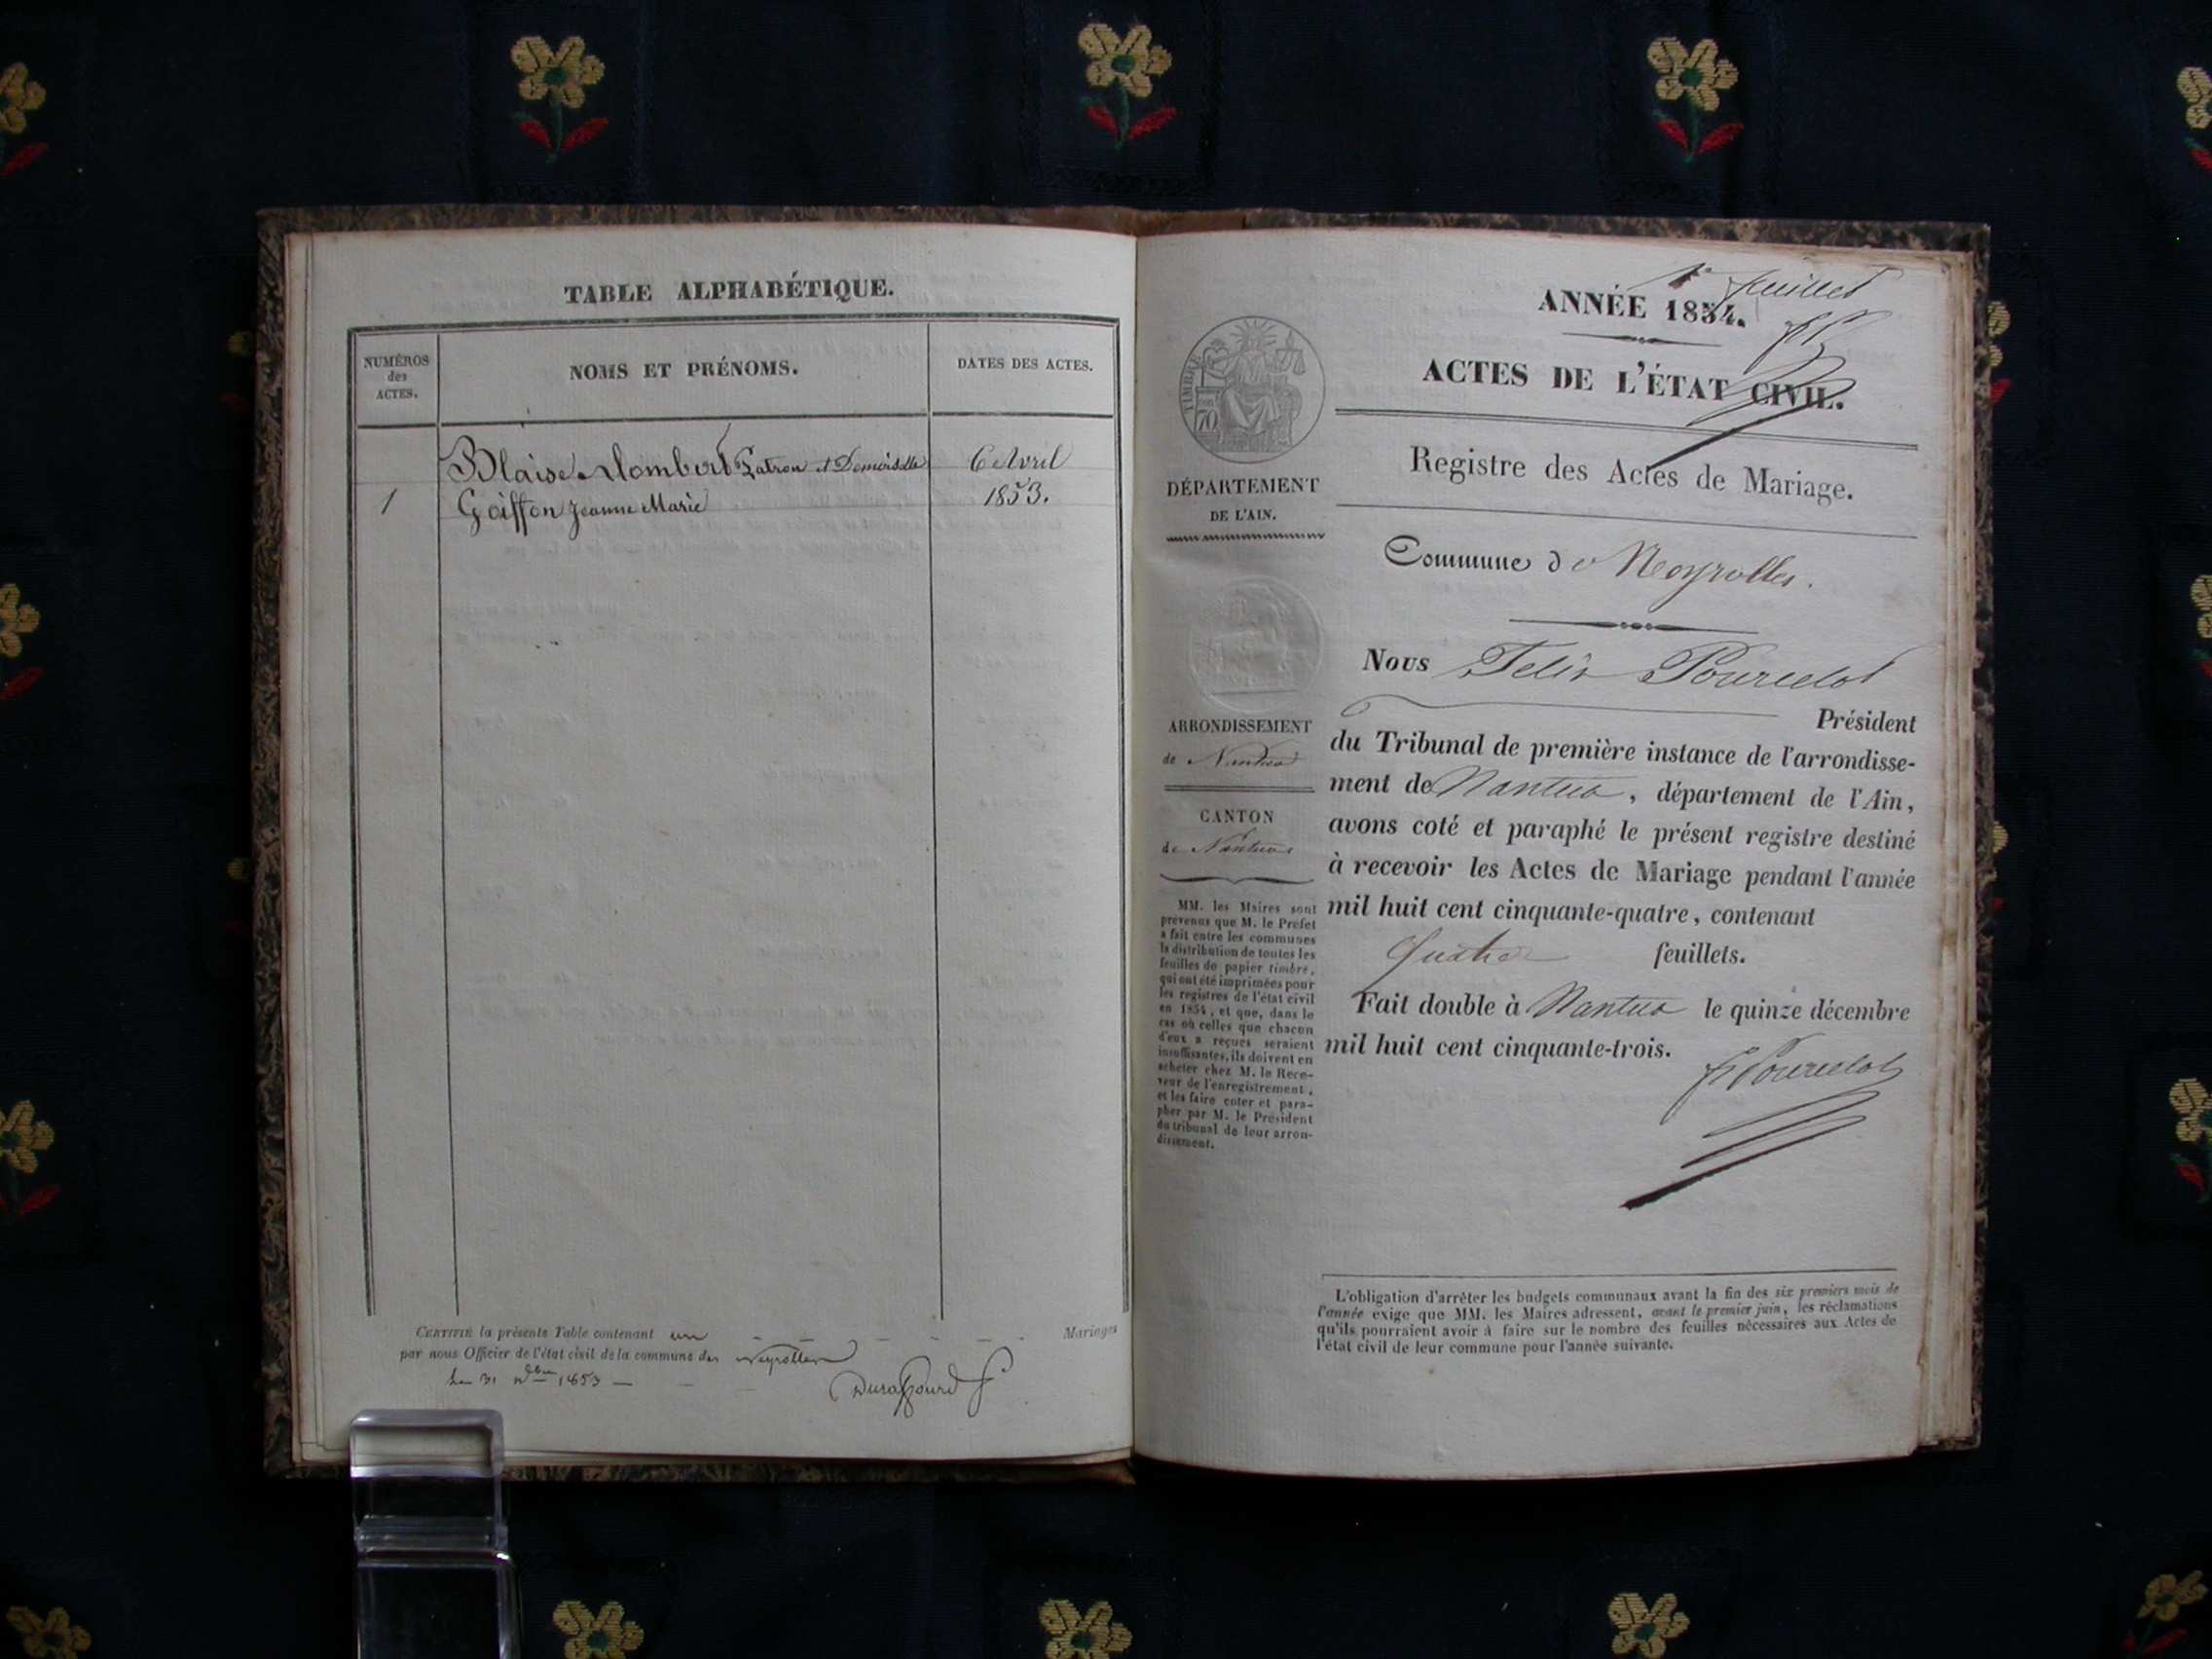 TABLE ALPHABÉTIQUE.
NUMÉROS
des
ACTES.
NOMS ET PRÉNOMS.
DATES DES ACTES.
Blaise et Demoiselle
6 Avril
1
Goiffon Jeanne Marie
1853.
CERTIFIÉ la présente Table contenant un
Mariages
par nous Officier de l'état civil de la commune des Neyrolles
Le 31 Xbre 1853
Duraffourd
1er feuillet
ANNÉE 1854.
fP
ACTES DE L'ÉTAT CIVIL.
Registre des Actes de Mariage.
Commune de Neyrolles.
TIMBRE
70
DÉPARTEMENT
DE L'AIN.
ARRONDISSEMENT
de Nantua
CANTON
de Nantua
MM. les Maires sont
prévenus que M. le Préfet
a fait entre les communes
la distribution de toutes les
feuilles de papier timbré,
qui ont été imprimées pour
les registres de l'état civil
en 1854, et que, dans le
cas où celles que chacun
d'eux a reçues seraient
insuffisantes, ils doivent en
acheter chez M. le Rece-
veur de l'enregistrement,
et les faire coter et para-
pher par M. le Président
du tribunal de leur arron-
dissement.
Nous Félix Pourcelot
Président
du Tribunal de première instance de l'arrondisse-
ment de Nantua, département de l'Ain,
avons coté et paraphé le présent registre destiné
à recevoir les Actes de Mariage pendant l'année
mil huit cent cinquante-quatre, contenant
Quatre feuillets.
Fait double à Nantua le quinze décembre
mil huit cent cinquante-trois.
f Pourcelot
L'obligation d'arrêter les budgets communaux avant la fin des six premiers mois de
l'année exige que MM. les Maires adressent, avant le premier juin, les réclamations
qu'ils pourraient avoir à faire sur le nombre des feuilles nécessaires aux Actes de
l'état civil de leur commune pour l'année suivante.